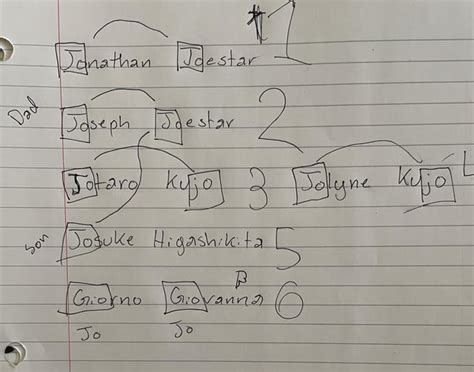 #1
Jonathan Joestar
Dad Joseph Joestar 2
Jotaro Kujo 3 Jolyne Kujo 4
Son Josuke Higashikita 5
Giorno Giovanna 6
Jo Jo